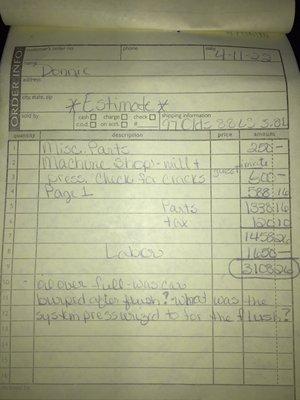 ORDER INFO
customer's order no.
phone
date 4-11-23
name Donnie
address
city, state, zip
*Estimate*
sold by
cash charge check
c.o.d. on acct. #
shipping information
97 Olds 88 LS 3.8L
quantity description price amount
1 Misc. Parts 250 -
2 Machine Shop - mill + guesstimate
3 press. check for cracks 600 -
4 Page 1 588 16
5 Parts 1338 16
6 tax 120 10
7 1458 26
8 Labor 1650 -
9 3108 26
10 - oil over full - was car
11 burped after flush? - what was the
12 system pressurized to for the flush?
13
14
15
16